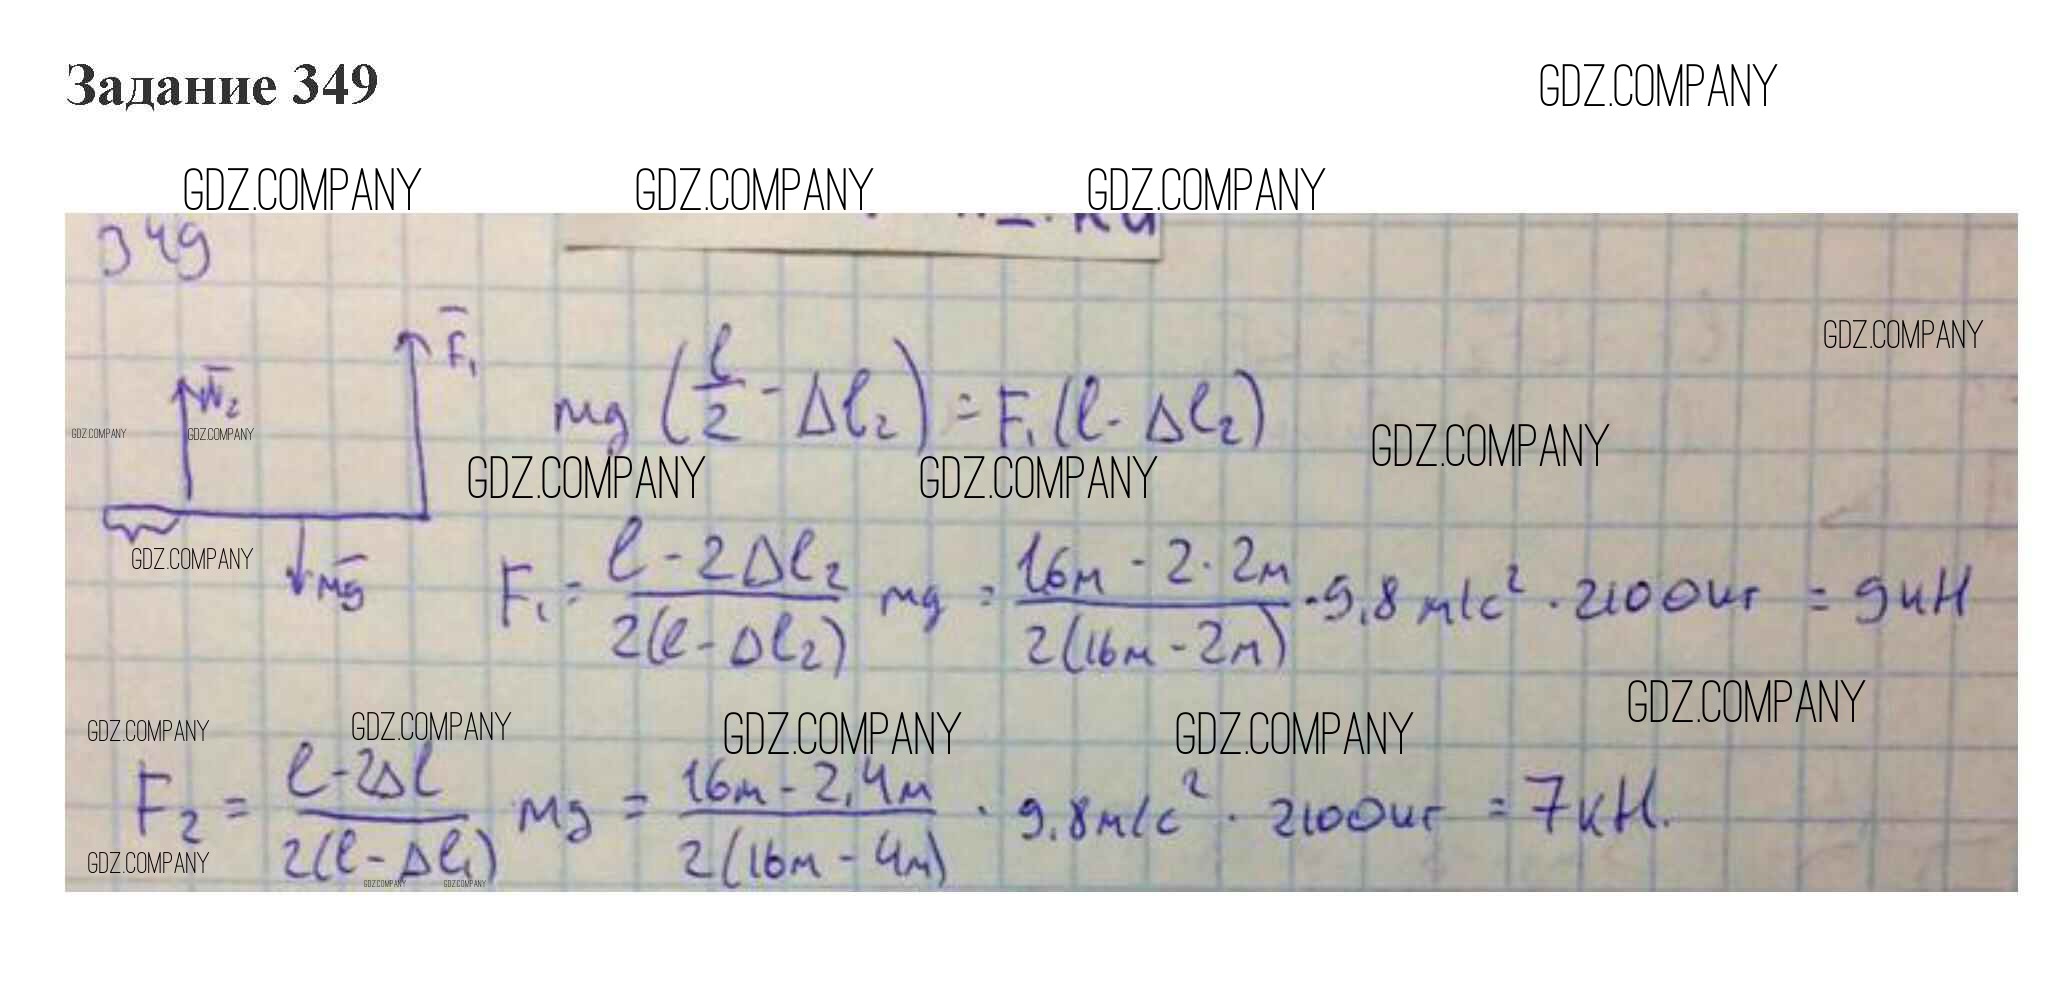 Задание 349
GDZ.COMPANY
GDZ.COMPANY GDZ.COMPANY GDZ.COMPANY
349
GDZ.COMPANY
F₁
N₂
mg (l/2 - Δl₂) = F₁(l - Δl₂)
GDZ.COMPANY GDZ.COMPANY
GDZ.COMPANY GDZ.COMPANY GDZ.COMPANY
GDZ.COMPANY
mg
F₁ = (l - 2Δl₂)/(2(l - Δl₂)) mg = (16м - 2·2м)/(2(16м - 2м)) · 9,8 м/с² · 2100кг = 9кН
GDZ.COMPANY
GDZ.COMPANY GDZ.COMPANY GDZ.COMPANY GDZ.COMPANY
F₂ = (l - 2Δl)/(2(l - Δl₁)) mg = (16м - 2,4м)/(2(16м - 4м)) · 9,8м/с² · 2100кг = 7кН.
GDZ.COMPANY
GDZ.COMPANY GDZ.COMPANY